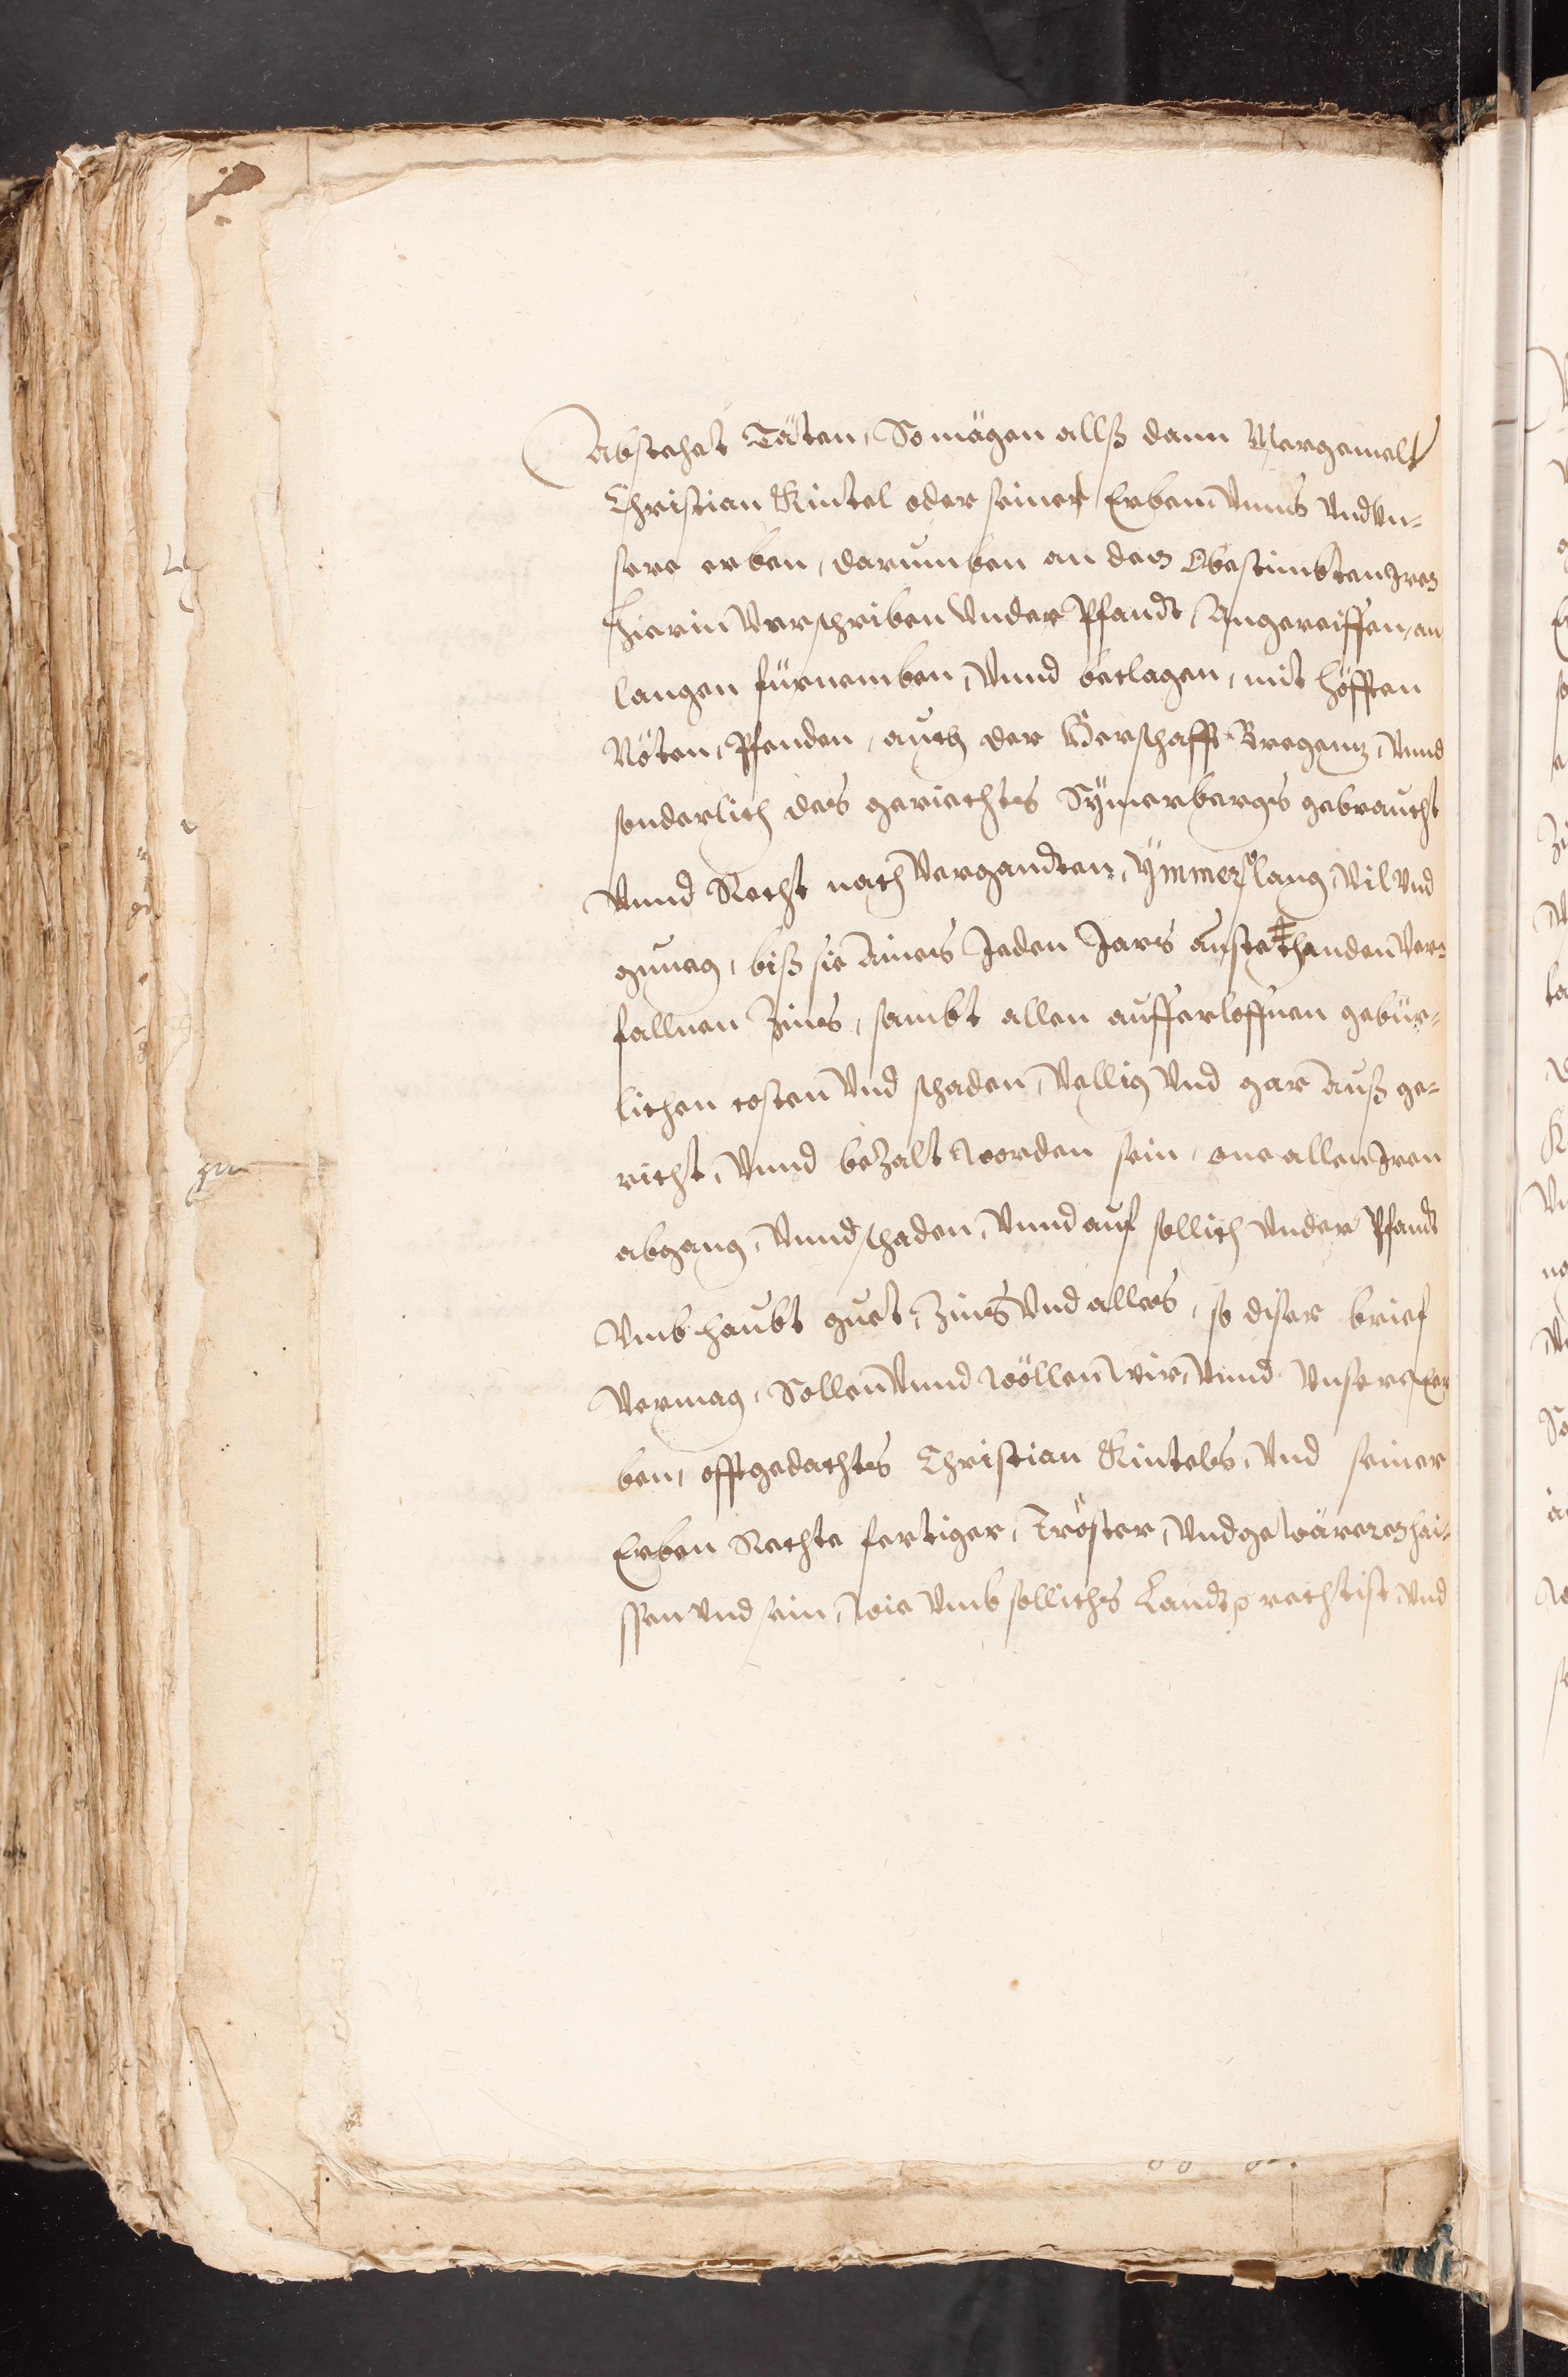 Abstehet Täten, So mögen allß dann Vorgemelt
Christian Kintel oder seiner Erben Vnns Vnd Vn-
sere erben, darumben an dem Obestimbten Irem
hierin Verschriben Vnder Pfandt, Angereiffen, an
langen fürnemben, Vnnd betlagen, mit höfften
Nöten, Pfenden, auch der Herschafft Bregentz, Vnnd
sonderlich des geriechts Symerbergs gebraucht
Vnnd Recht nach Verganndten, Ymmer so lang, Vil Vnd
gnueg, biß sie Aines Jeden Jars ansteethenden Ver-
fallnen Zins, sambt allen aufferloffnen gebür-
lichen costen Vnd schaden, Vellig Vnd gar Auß ge-
richt, Vnnd beZalt worden sein, one allen Iren
abgang, Vnnd schaden, Vnnd auf sollich Vnder Pfandt
Vmb haubt guet, Zins Vnd alles, so diser brief
Vermag, Sollen Vnnd wöllen wir, Vnnd Vnsere Er
ben, offtgedachts Christian Kintels, Vnd seiner
Erben Rechte fertiger, Tröster, Vnd gewärer hai-
ssen Vnd sein, wie Vmb sollichs Landts recht ist, Vnd